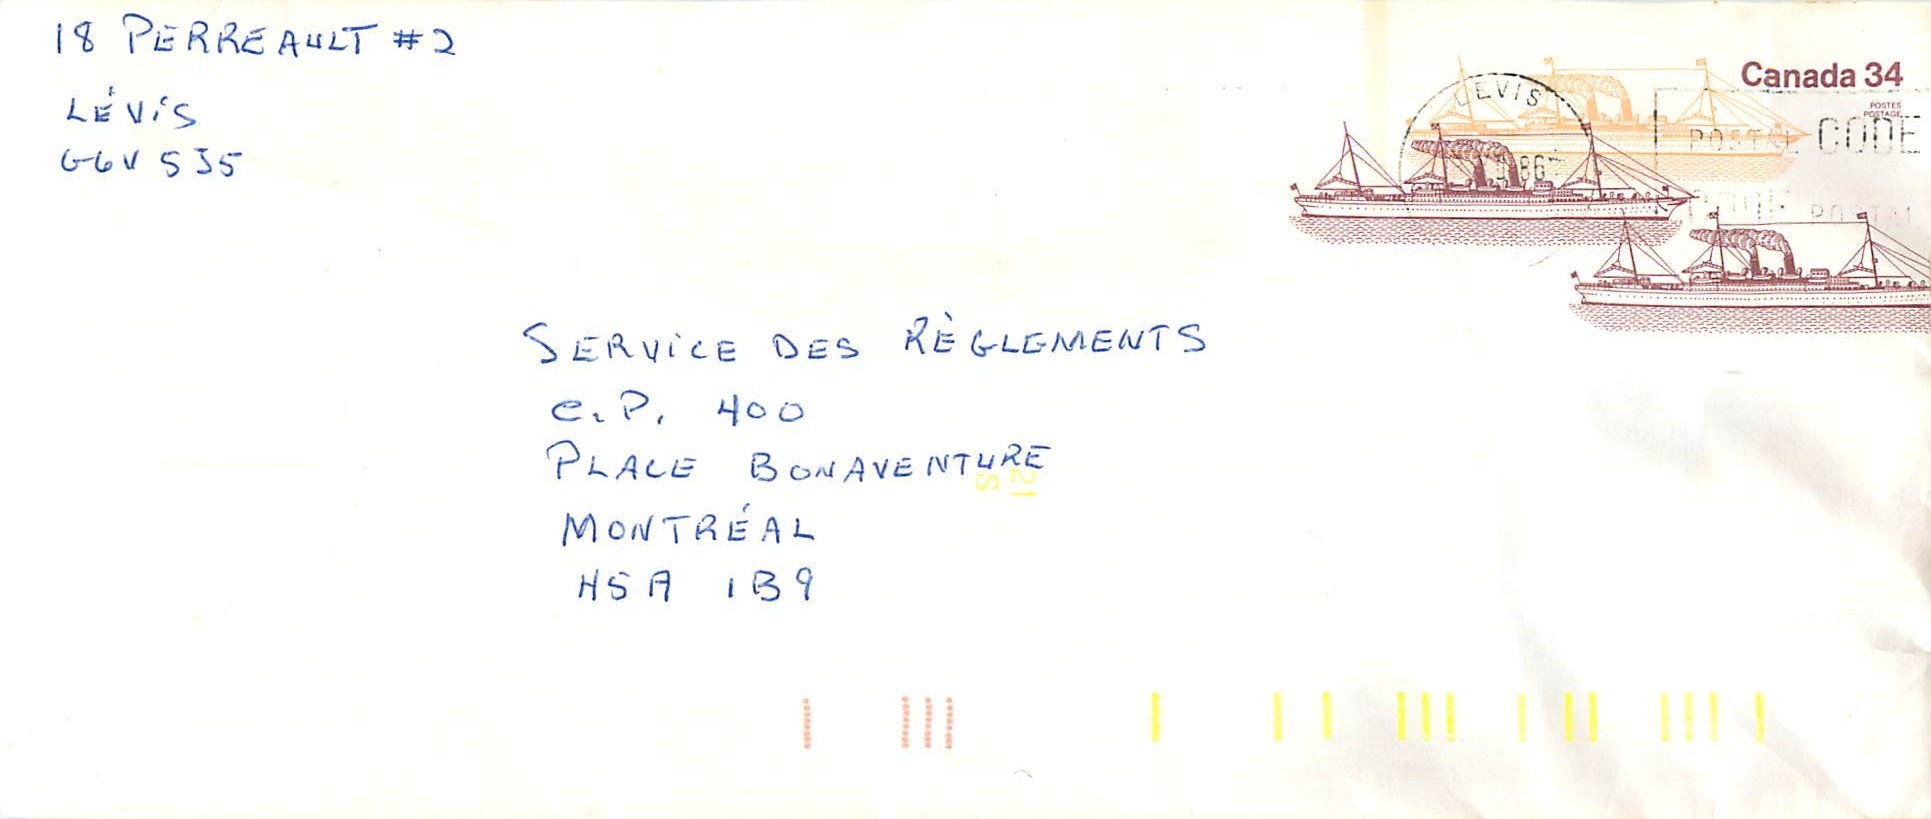 18 PERREAULT #2
LÉVIS
G6V 5J5
Canada 34
POSTES
POSTAGE
LEVIS
86
POSTAL CODE
CODE POSTAL
SERVICE DES RÈGLEMENTS
C.P. 400
PLACE BONAVENTURE
MONTRÉAL
H5A 1B9
21
S